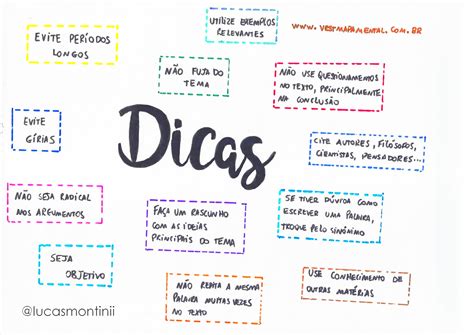 EVITE PERÍODOS
LONGOS
UTILIZE EXEMPLOS
RELEVANTES
WWW.VESTMAPAMENTAL.COM.BR
NÃO FUJA DO
TEMA
NÃO USE QUESTIONAMENTOS
NO TEXTO, PRINCIPALMENTE
NA CONCLUSÃO
EVITE
GÍRIAS
Dicas
CITE AUTORES, FILÓSOFOS,
CIENTISTAS, PENSADORES...
NÃO SEJA RADICAL
NOS ARGUMENTOS
FAÇA UM RASCUNHO
COM AS IDEIAS
PRINCIPAIS DO TEMA
SE TIVER DÚVIDA COMO
ESCREVER UMA PALAVRA,
TROQUE PELO SINÔNIMO
SEJA
OBJETIVO
NÃO REPITA A MESMA
PALAVRA MUITAS VEZES
NO TEXTO
USE CONHECIMENTO DE
OUTRAS MATÉRIAS
@lucasmontinii